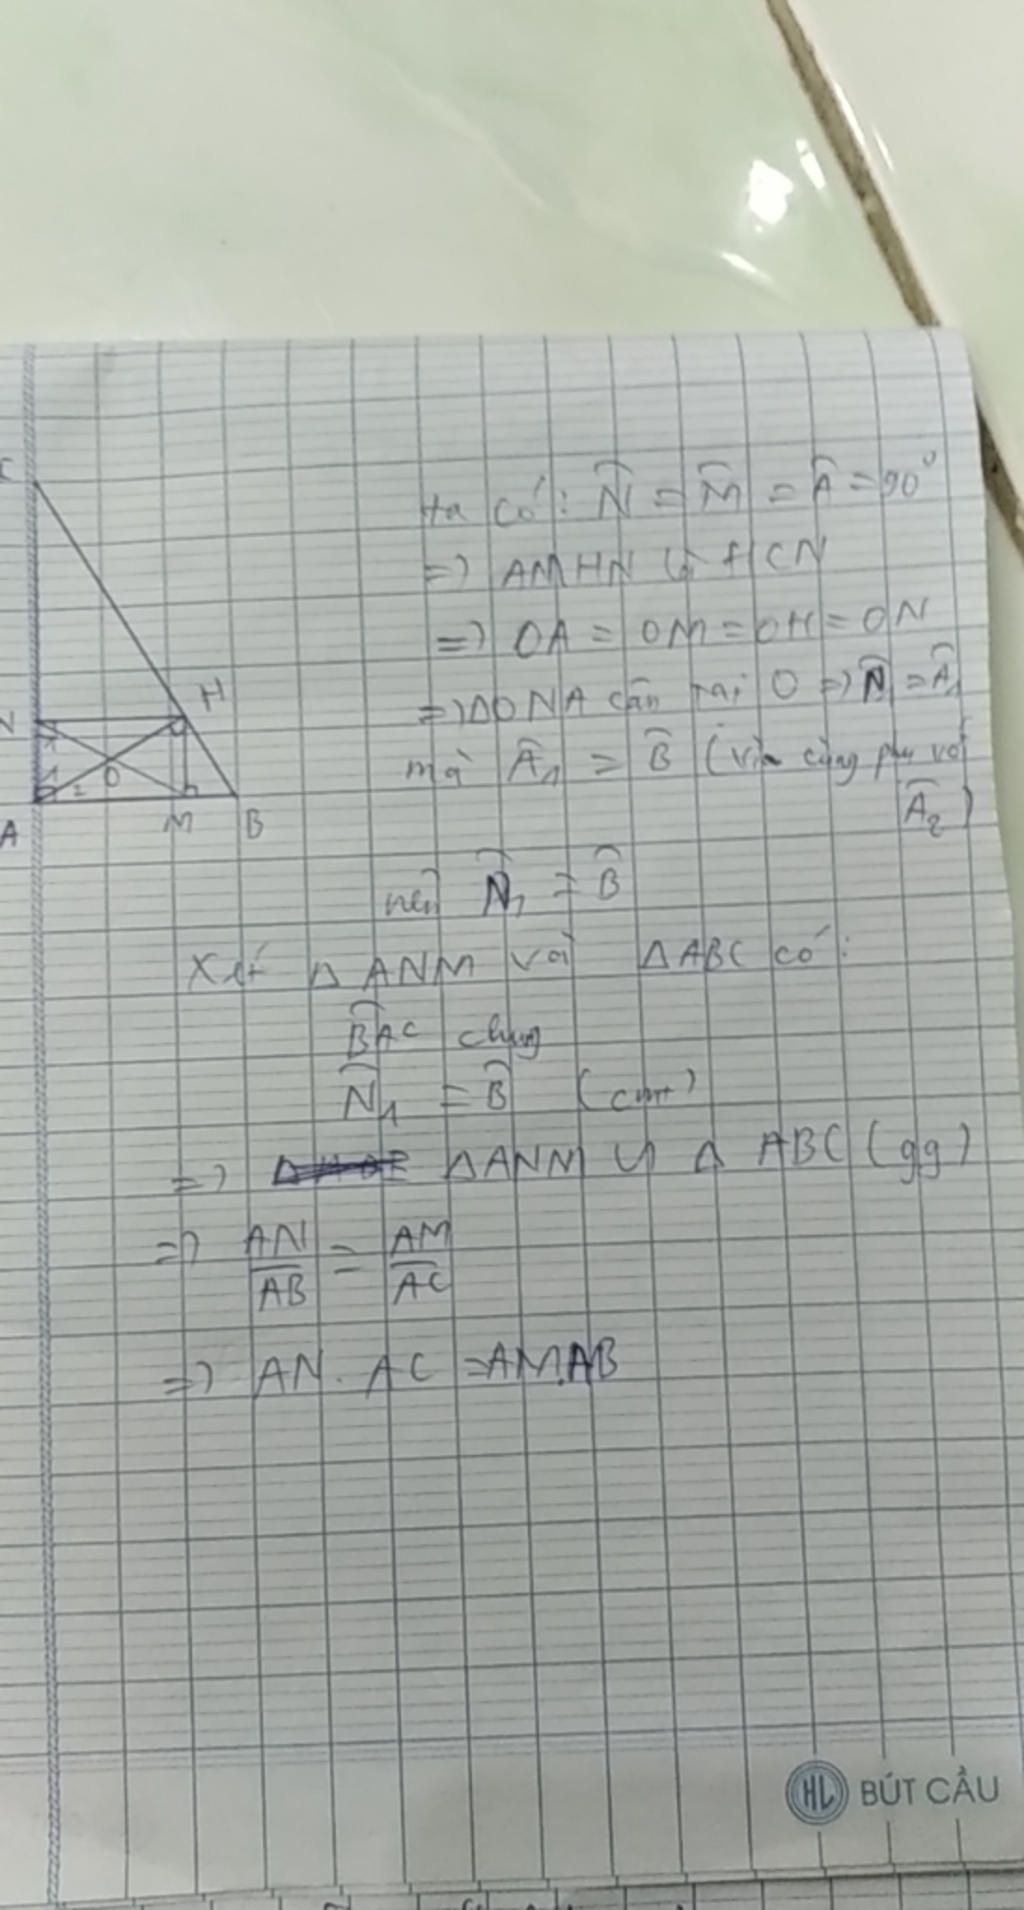 C
H
N
1
1
2
O
A
M
B
ta có: N̂ = M̂ = Â = 90°
=> AMHN là HCN
=> OA = OM = OH = ON
=> ΔONA cân tại O => N̂ = Â₁
mà Â₁ = B̂ (vì cùng phụ với
Â₂)
nên N̂₁ = B̂
Xét Δ ANM với Δ ABC có:
B̂AC chung
N̂₁ = B̂ (cmt)
=> ΔANM ∽ Δ ABC (gg)
=> AN/AB = AM/AC
=> AN . AC = AM.AB
HL BÚT CẦU